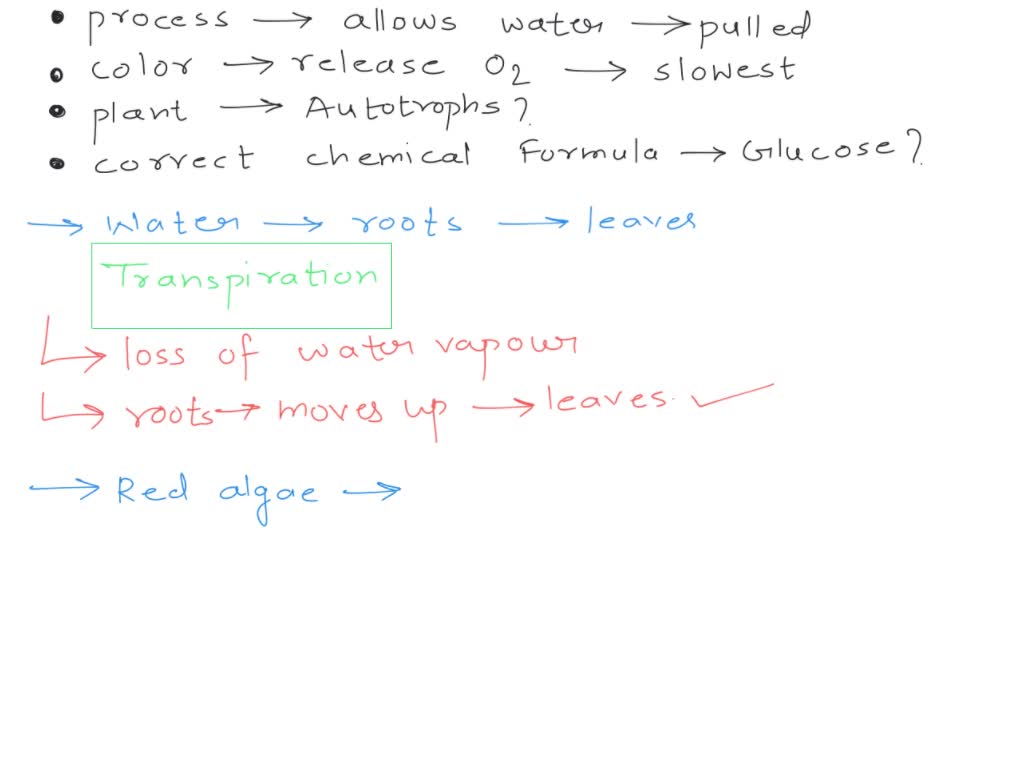 • process → allows water → pulled
• color → release O2 → slowest
• plant → Autotrophs?
• correct chemical Formula → Glucose?
→ Water → roots → leaves
Transpiration
↳ loss of water vapour
↳ roots → moves up → leaves. ✓
→ Red algae →